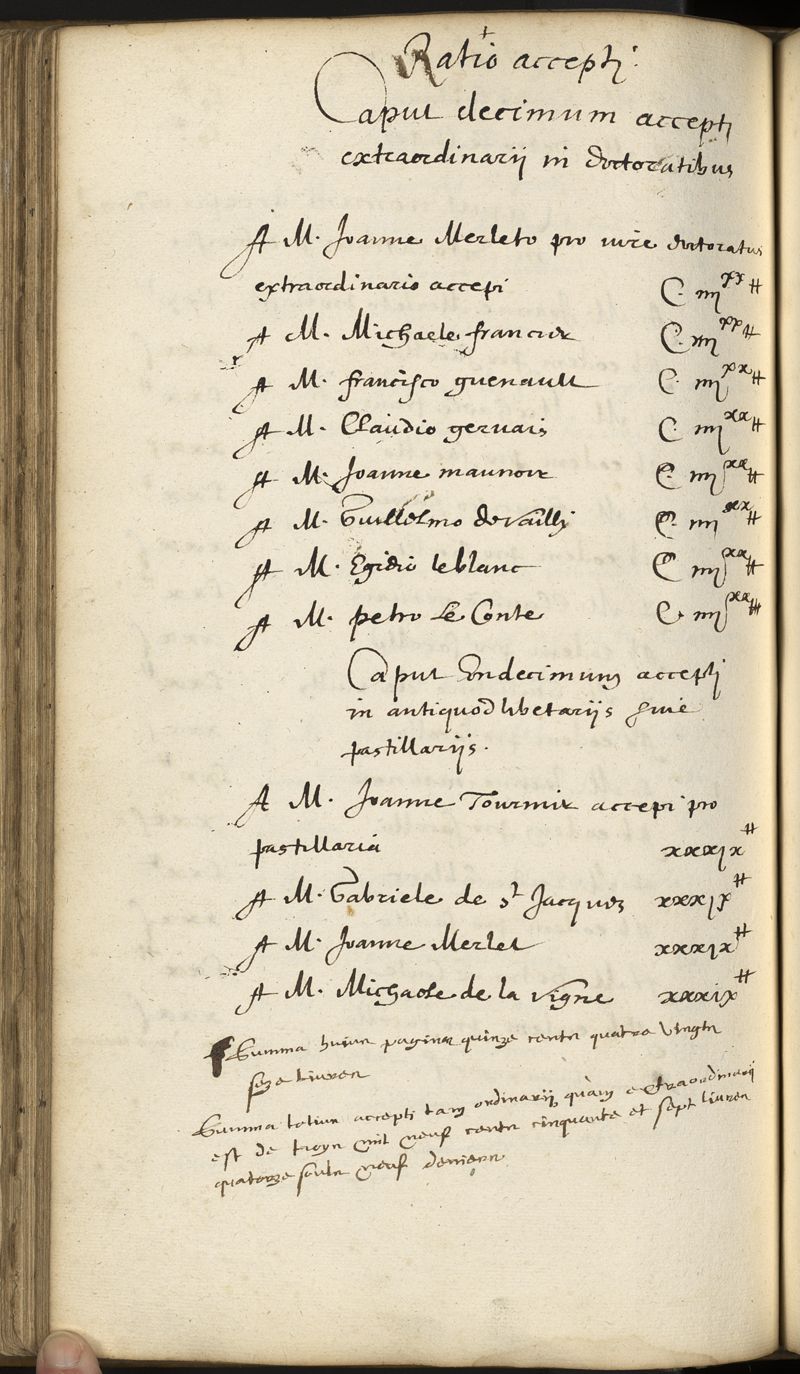 Ratio accepti.
Caput decimum accepti
extraordinarij in doctoratibus
A M. Joanne Merleto pro iure doctoratus
extraordinario accepi C. iiij^xx ₶
A M. Michaele francier C. iiij^xx ₶
A M. francisco guenault C. iiij^xx ₶
A M. Claudio gervais C. iiij^xx ₶
A M. Joanne maunoir C. iiij^xx ₶
A M. Guillelmo de Vailly C. iiij^xx ₶
A M. Egidio leblanc C. iiij^xx ₶
A M. petro Le Conte C. iiij^xx ₶
Caput Ondecimum accepti
in antiquodlibetarijs siue
pastillarijs.
A M. Joanne Tourmir accepi pro
pastillaria xxxix ₶
A M. Gabriele de St Jacques xxxix ₶
A M. Joanne Merlet xxxix ₶
A M. Michaele de la vigne xxxix ₶
Summa huius paginæ quinze cents quatre vingts
seze livres
Summa totius accepti tam ordinarij quàm extraordinarij
est de troys mil neuf cents cinquante et sept livres
quatorze soulz neuf deniers